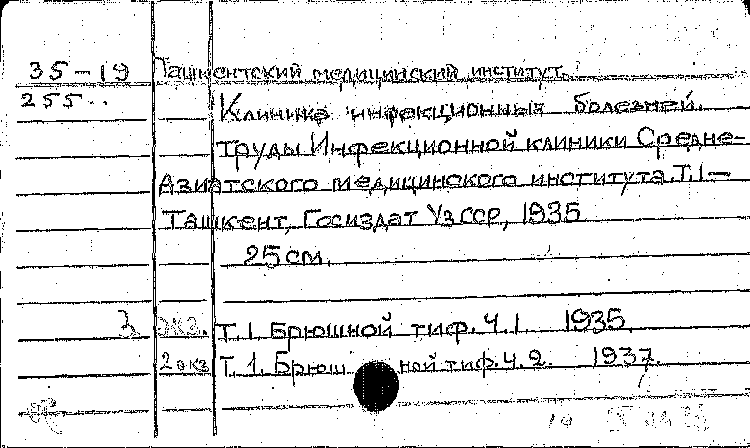 35-19 Ташкентский медицинский институт.
255..
Клиника инфекционных болезней.
Труды Инфекционной клиники Средне-
Азиатского медицинского института. Т.1-
Ташкент, Госиздат УзССР, 1935
25 см.
3 экз. Т. 1. Брюшной тиф. Ч. 1. 1935.
2 экз Т. 1. Брюшной тиф. Ч. 2. 1937.